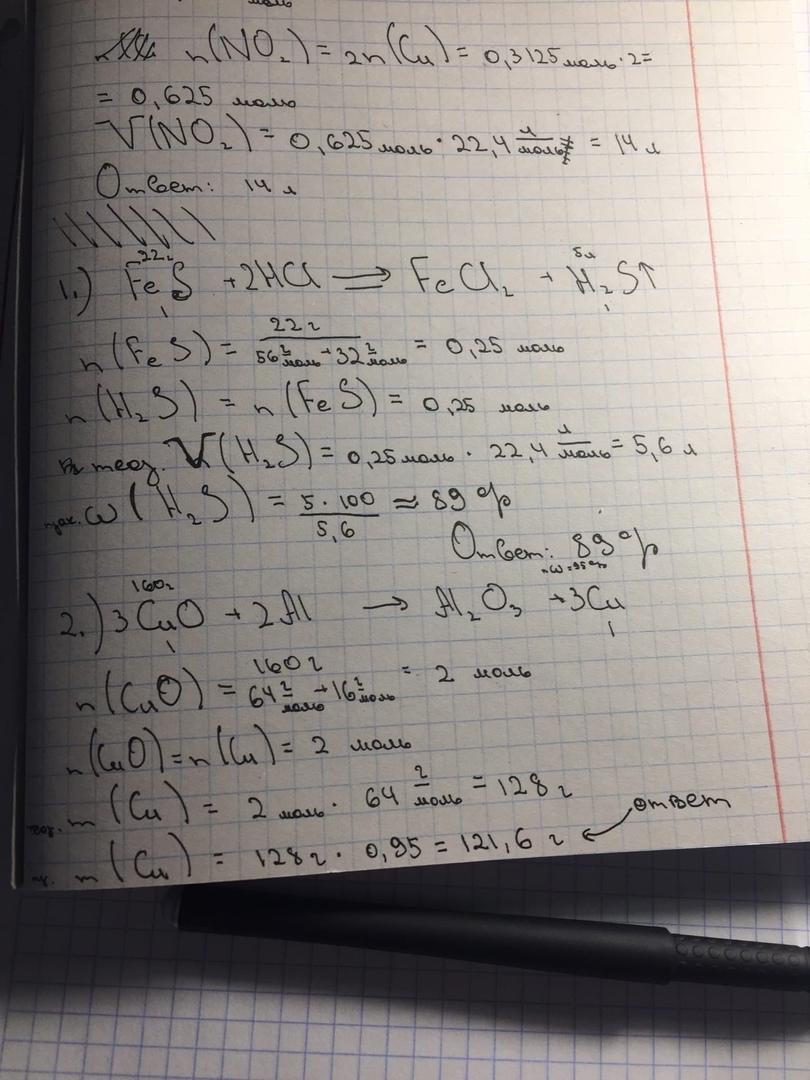 моль
n(NO₂) = 2n(Cu) = 0,3125 моль · 2 =
= 0,625 моль
V(NO₂) = 0,625 моль · 22,4 л/моль = 14 л
Ответ: 14 л
22г 5л
1.) FeS + 2HCl ⟹ FeCl₂ + H₂S↑
1 1
n(FeS) = 22г / (56 г/моль + 32 г/моль) = 0,25 моль
n(H₂S) = n(FeS) = 0,25 моль
теор. V(H₂S) = 0,25 моль · 22,4 л/моль = 5,6 л
ω(H₂S) = 5 · 100 / 5,6 ≈ 89 %
Ответ: 89 %
160г ω = 95%
2.) 3CuO + 2Al → Al₂O₃ + 3Cu
1 1
n(CuO) = 160г / (64 г/моль + 16 г/моль) = 2 моль
n(CuO) = n(Cu) = 2 моль
теор. m(Cu) = 2 моль · 64 г/моль = 128 г
ответ
пр. m(Cu) = 128г · 0,95 = 121,6 г ←